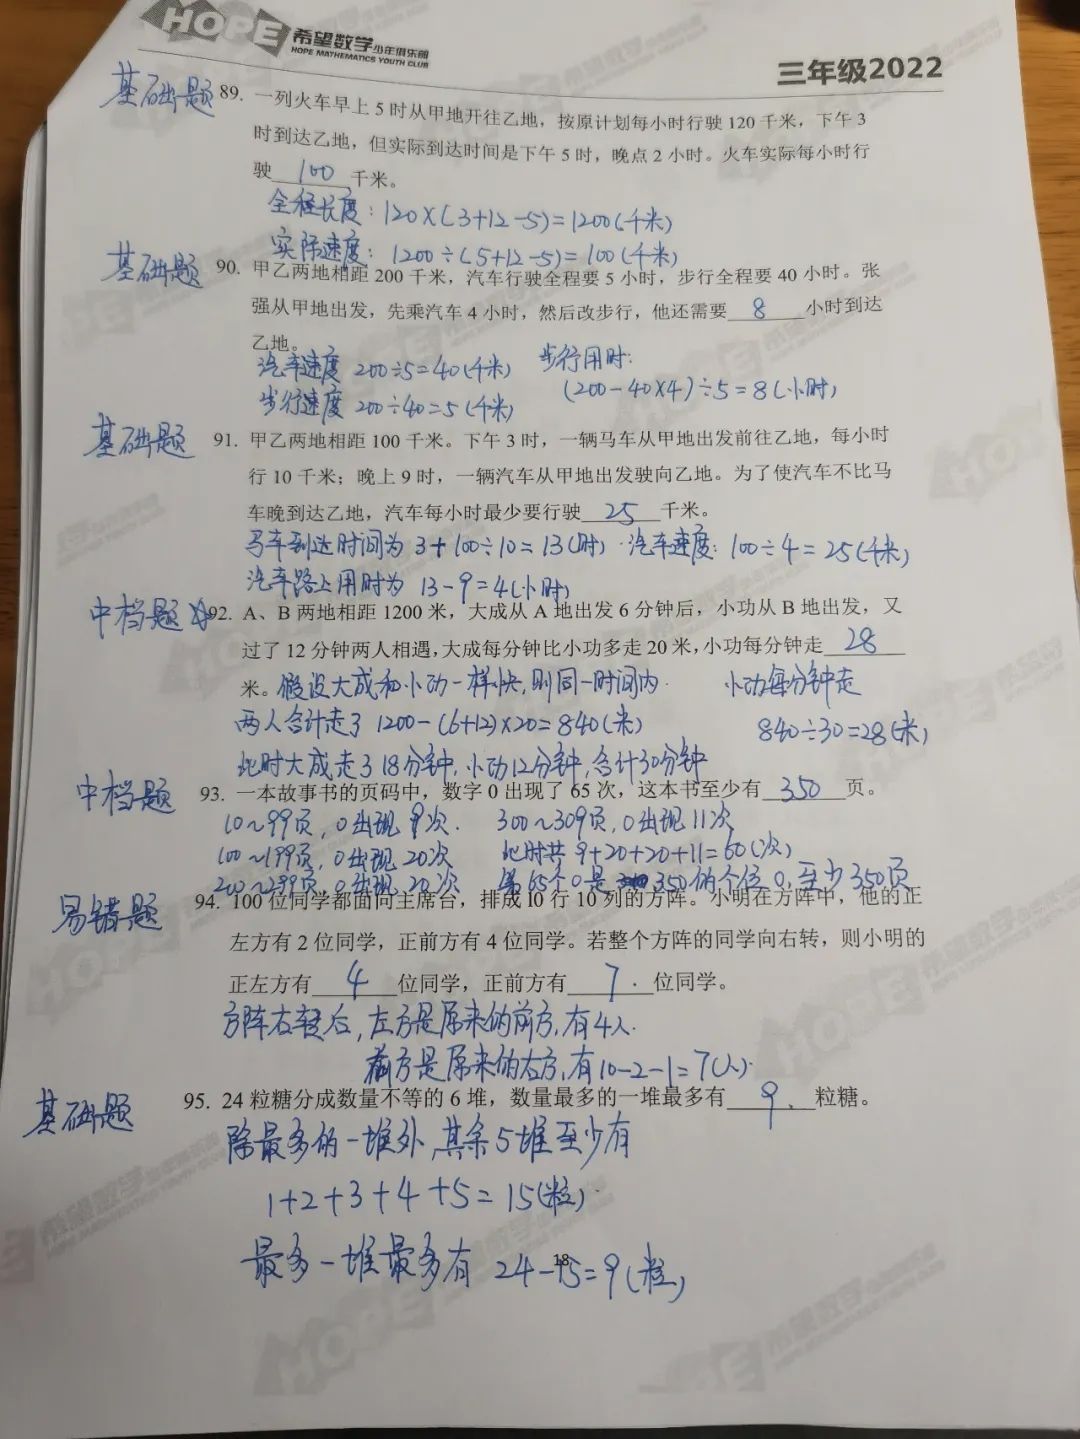 HOPE 希望数学少年俱乐部
HOPE MATHEMATICS YOUTH CLUB
三年级2022
基础题 89. 一列火车早上 5 时从甲地开往乙地，按原计划每小时行驶 120 千米，下午 3
时到达乙地，但实际到达时间是下午 5 时，晚点 2 小时。火车实际每小时行
驶 100 千米。
全程长度：120×(3+12-5)=1200(千米)
实际速度：1200÷(5+12-5)=100(千米)
基础题 90. 甲乙两地相距 200 千米，汽车行驶全程要 5 小时，步行全程要 40 小时。张
强从甲地出发，先乘汽车 4 小时，然后改步行，他还需要 8 小时到达
乙地。
汽车速度 200÷5=40(千米) 步行用时:
步行速度 200÷40=5(千米) (200-40×4)÷5=8(小时)
基础题 91. 甲乙两地相距 100 千米。下午 3 时，一辆马车从甲地出发前往乙地，每小时
行 10 千米；晚上 9 时，一辆汽车从甲地出发驶向乙地。为了使汽车不比马
车晚到达乙地，汽车每小时最少要行驶 25 千米。
马车到达时间为 3+100÷10=13(时) 汽车速度: 100÷4=25(千米)
汽车路上用时为 13-9=4(小时)
中档题 92. A、B 两地相距 1200 米，大成从 A 地出发 6 分钟后，小功从 B 地出发，又
过了 12 分钟两人相遇，大成每分钟比小功多走 20 米，小功每分钟走 28
米。假设大成和小功一样快,则同一时间内 小功每分钟走
两人合计走了 1200-(6+12)×20=840(米) 840÷30=28(米)
此时大成走了18分钟,小功12分钟,合计30分钟
中档题 93. 一本故事书的页码中，数字 0 出现了 65 次，这本书至少有 350 页。
10~99页,0出现9次. 300~309页,0出现11次
100~199页,0出现20次 此时共9+20+20+11=60(次)
200~299页,0出现20次 第65个0是350的个位0,至少350页
易错题 94. 100 位同学都面向主席台，排成 10 行 10 列的方阵。小明在方阵中，他的正
左方有 2 位同学，正前方有 4 位同学。若整个方阵的同学向右转，则小明的
正左方有 4 位同学，正前方有 7. 位同学。
方阵右转后,左方是原来的前方,有4人.
前方是原来的右方,有10-2-1=7(人).
基础题 95. 24 粒糖分成数量不等的 6 堆，数量最多的一堆最多有 9. 粒糖。
除最多的一堆外,其余5堆至少有
1+2+3+4+5=15(粒)
最多一堆最多有 24-15=9(粒)
18